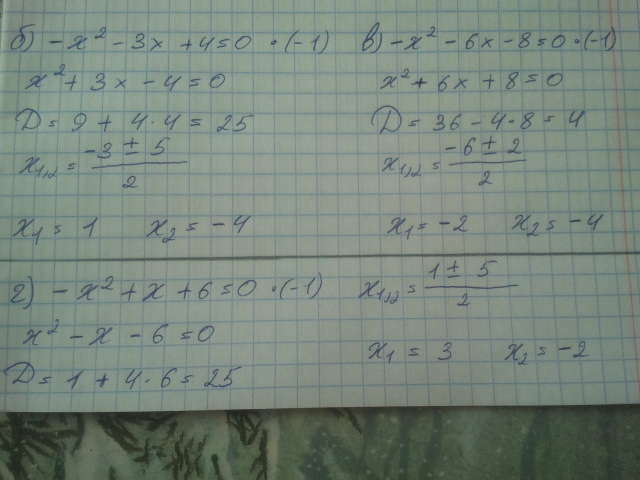 б) -x² - 3x + 4 = 0 · (-1)
x² + 3x - 4 = 0
D = 9 + 4·4 = 25
x₁,₂ = (-3 ± 5) / 2
x₁ = 1 x₂ = -4
в) -x² - 6x - 8 = 0 · (-1)
x² + 6x + 8 = 0
D = 36 - 4·8 = 4
x₁,₂ = (-6 ± 2) / 2
x₁ = -2 x₂ = -4
г) -x² + x + 6 = 0 · (-1)
x² - x - 6 = 0
D = 1 + 4·6 = 25
x₁,₂ = (1 ± 5) / 2
x₁ = 3 x₂ = -2